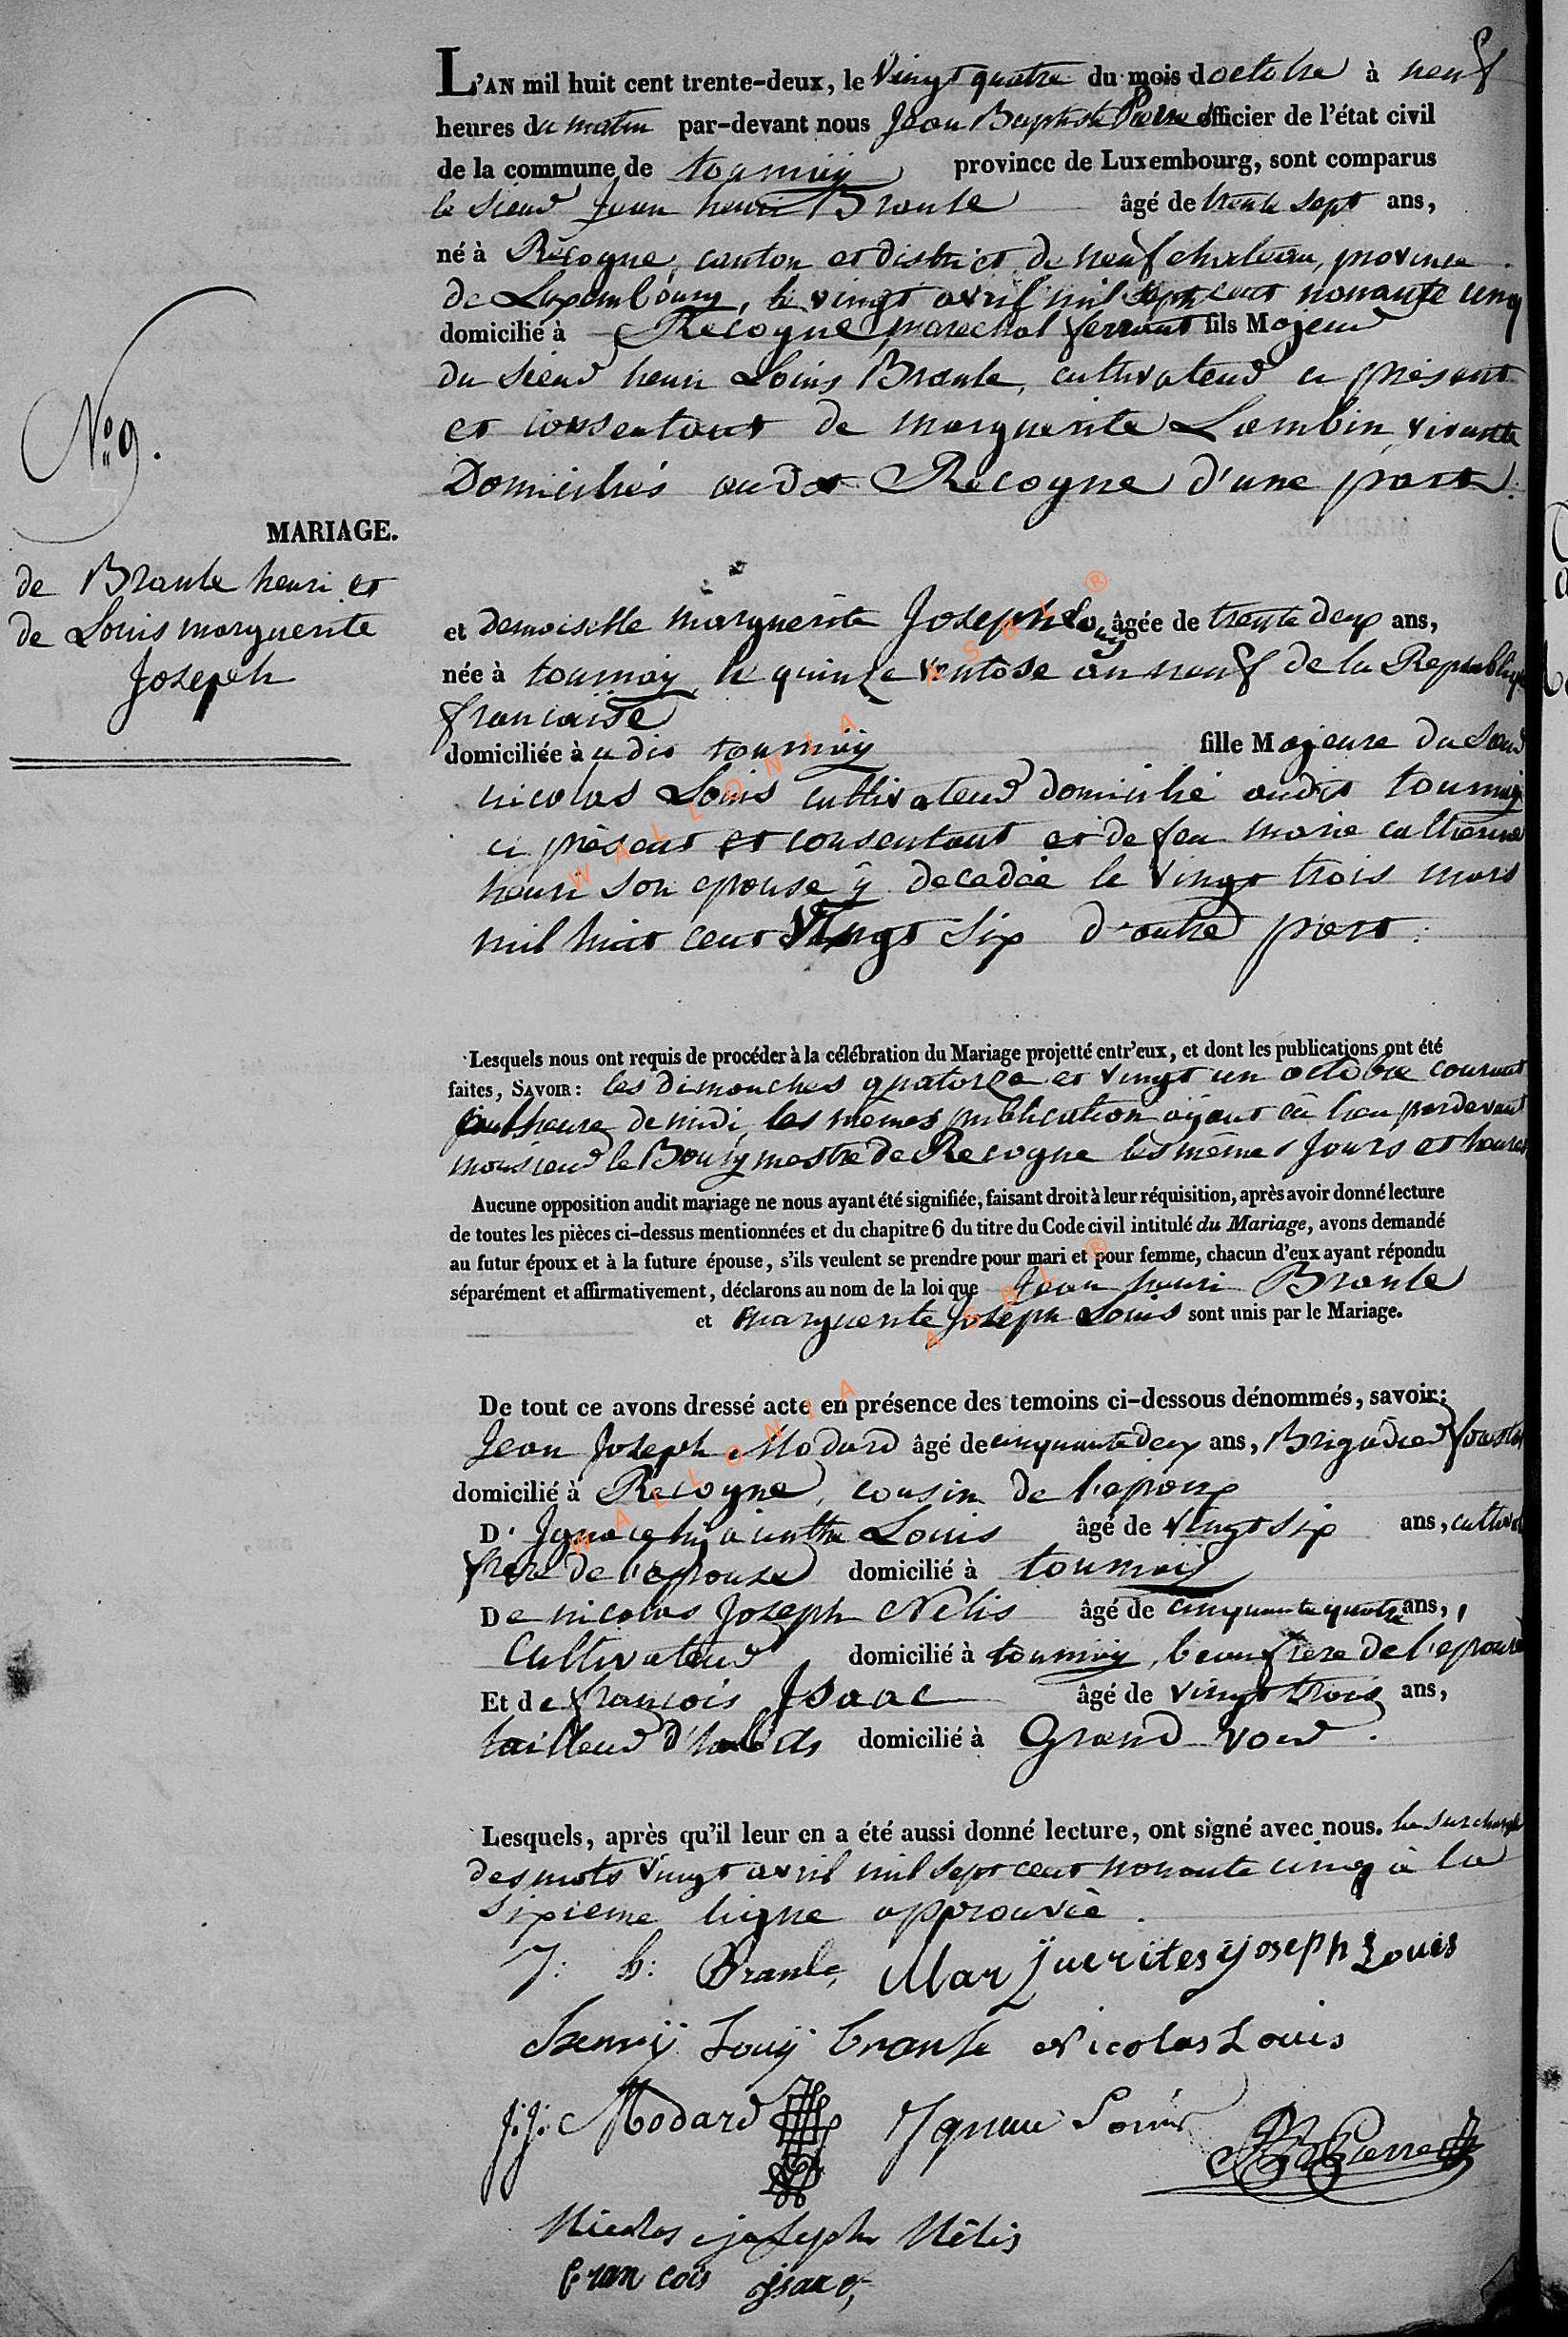 L'AN mil huit cent trente-deux, le vingt quatre du mois doctobre à neuf
heures du matin par-devant nous Jean Baptiste Pierre officier de l'état civil
de la commune de tournay province de Luxembourg, sont comparus
le sieur Jean henri Branle âgé de trente sept ans,
né à Recogne, canton et district de neufchateau, province
de Luxembourg, le vingt avril mil sept cent nonante cinq
domicilié à Recogne, marechal ferrant fils Majeur
du sieur henri Louis Branle, cultivateur ci présent
et consentant de marguerite Lambin vivante
Domiciliés audit Recogne d'une part.
N° 9.
MARIAGE.
de Branle henri et
de Louis marguerite
Joseph
et demoiselle marguerite Joseph Louis âgée de trente deux ans,
née à tournay, le quinze ventose an neuf de la Republique
francaise
domiciliée à u dit tournay fille Majeure du Sieur
nicolas Louis cultivateur domicilié audit tournay
ci présent et consentant et de feu marie catherine
henri son epouse y decedée le vingt trois mars
mil huit cent vingt six d'autre part.
Lesquels nous ont requis de procéder à la célébration du Mariage projetté entr'eux, et dont les publications ont été
faites, SAVOIR: les dimanches quatorze et vingt un octobre courant
heure de midi, les mêmes publication ayant eû lieu pardevant
monsieur le Bourgmestre de Recogne les mêmes Jours et heures
Aucune opposition audit mariage ne nous ayant été signifiée, faisant droit à leur réquisition, après avoir donné lecture
de toutes les pièces ci-dessus mentionnées et du chapitre 6 du titre du Code civil intitulé du Mariage, avons demandé
au futur époux et à la future épouse, s'ils veulent se prendre pour mari et pour femme, chacun d'eux ayant répondu
séparément et affirmativement, déclarons au nom de la loi que Jean henri Branle
et marguerite Joseph Louis sont unis par le Mariage.
De tout ce avons dressé acte en présence des temoins ci-dessous dénommés, savoir:
Jean Joseph Modard âgé de cinquante deux ans, Brigadier forestier
domicilié à Recogne, cousin de l'epoux
D' Ignace hyacinthe Louis âgé de vingt six ans, cultiv
frere de l'epouse domicilié à tournay
De nicolas Joseph Nélis âgé de cinquante quatre ans,
Cultivateur domicilié à tournay, beaufrere de l'epouse
Et de francois Isaac âgé de vingt trois ans,
tailleur d'habits domicilié à Grand voir.
Lesquels, après qu'il leur en a été aussi donné lecture, ont signé avec nous. la surcharge
des mots vingt avril mil sept cent nonante cinq à la
sixieme ligne approuvée.
J: h: Branle, Marguerites yoseph Louis
henry Louy branle Nicolas Louis
J: J: Modard Ignace Louis JB Pierre
Nicolas joseph Nélis
Francois Isaac
WALLONIA ASBL ®
WALLONIA ASBL ®